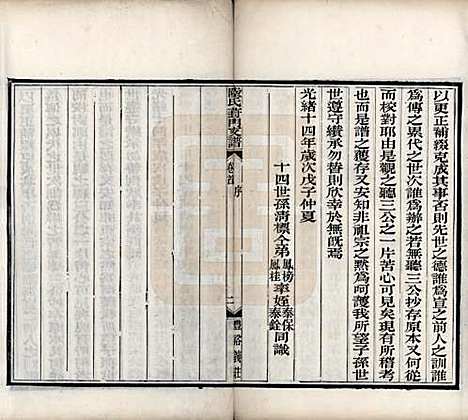 以更正補綴克成其事否則先世之德誰為宣之前人之訓誰
為傳之累代之世次誰為辦之若無聽三公抄存原本又何從
而校對耶由是觀之聽三公之一片苦心可見矣現有所稽考
也而是譜之復存又安知非祖宗之默為呵護我所望子孫世
世遵守續承勿替則欣幸於無既焉
光緒十四年歲次戊子仲夏
十四世孫清標仝弟鳳榜鳳桂率姪泰保泰銓同識
陵氏葑門支譜
卷首 序
二
豊裕義莊